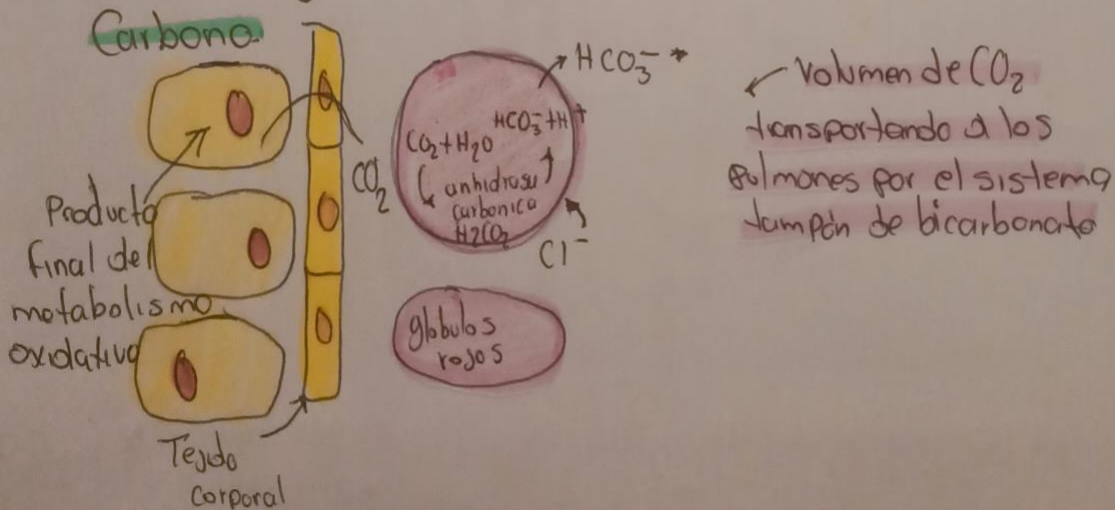 Carbono
Producto
final del
metabolismo
oxidativo
Tejido
corporal
CO₂
CO₂+H₂O
HCO₃⁻+H⁺
anhidrasa
carbonica
H₂CO₂
HCO₃⁻ *
Cl⁻
glóbulos
rojos
Volumen de CO₂
transportando a los
pulmones por el sistema
tampón de bicarbonato